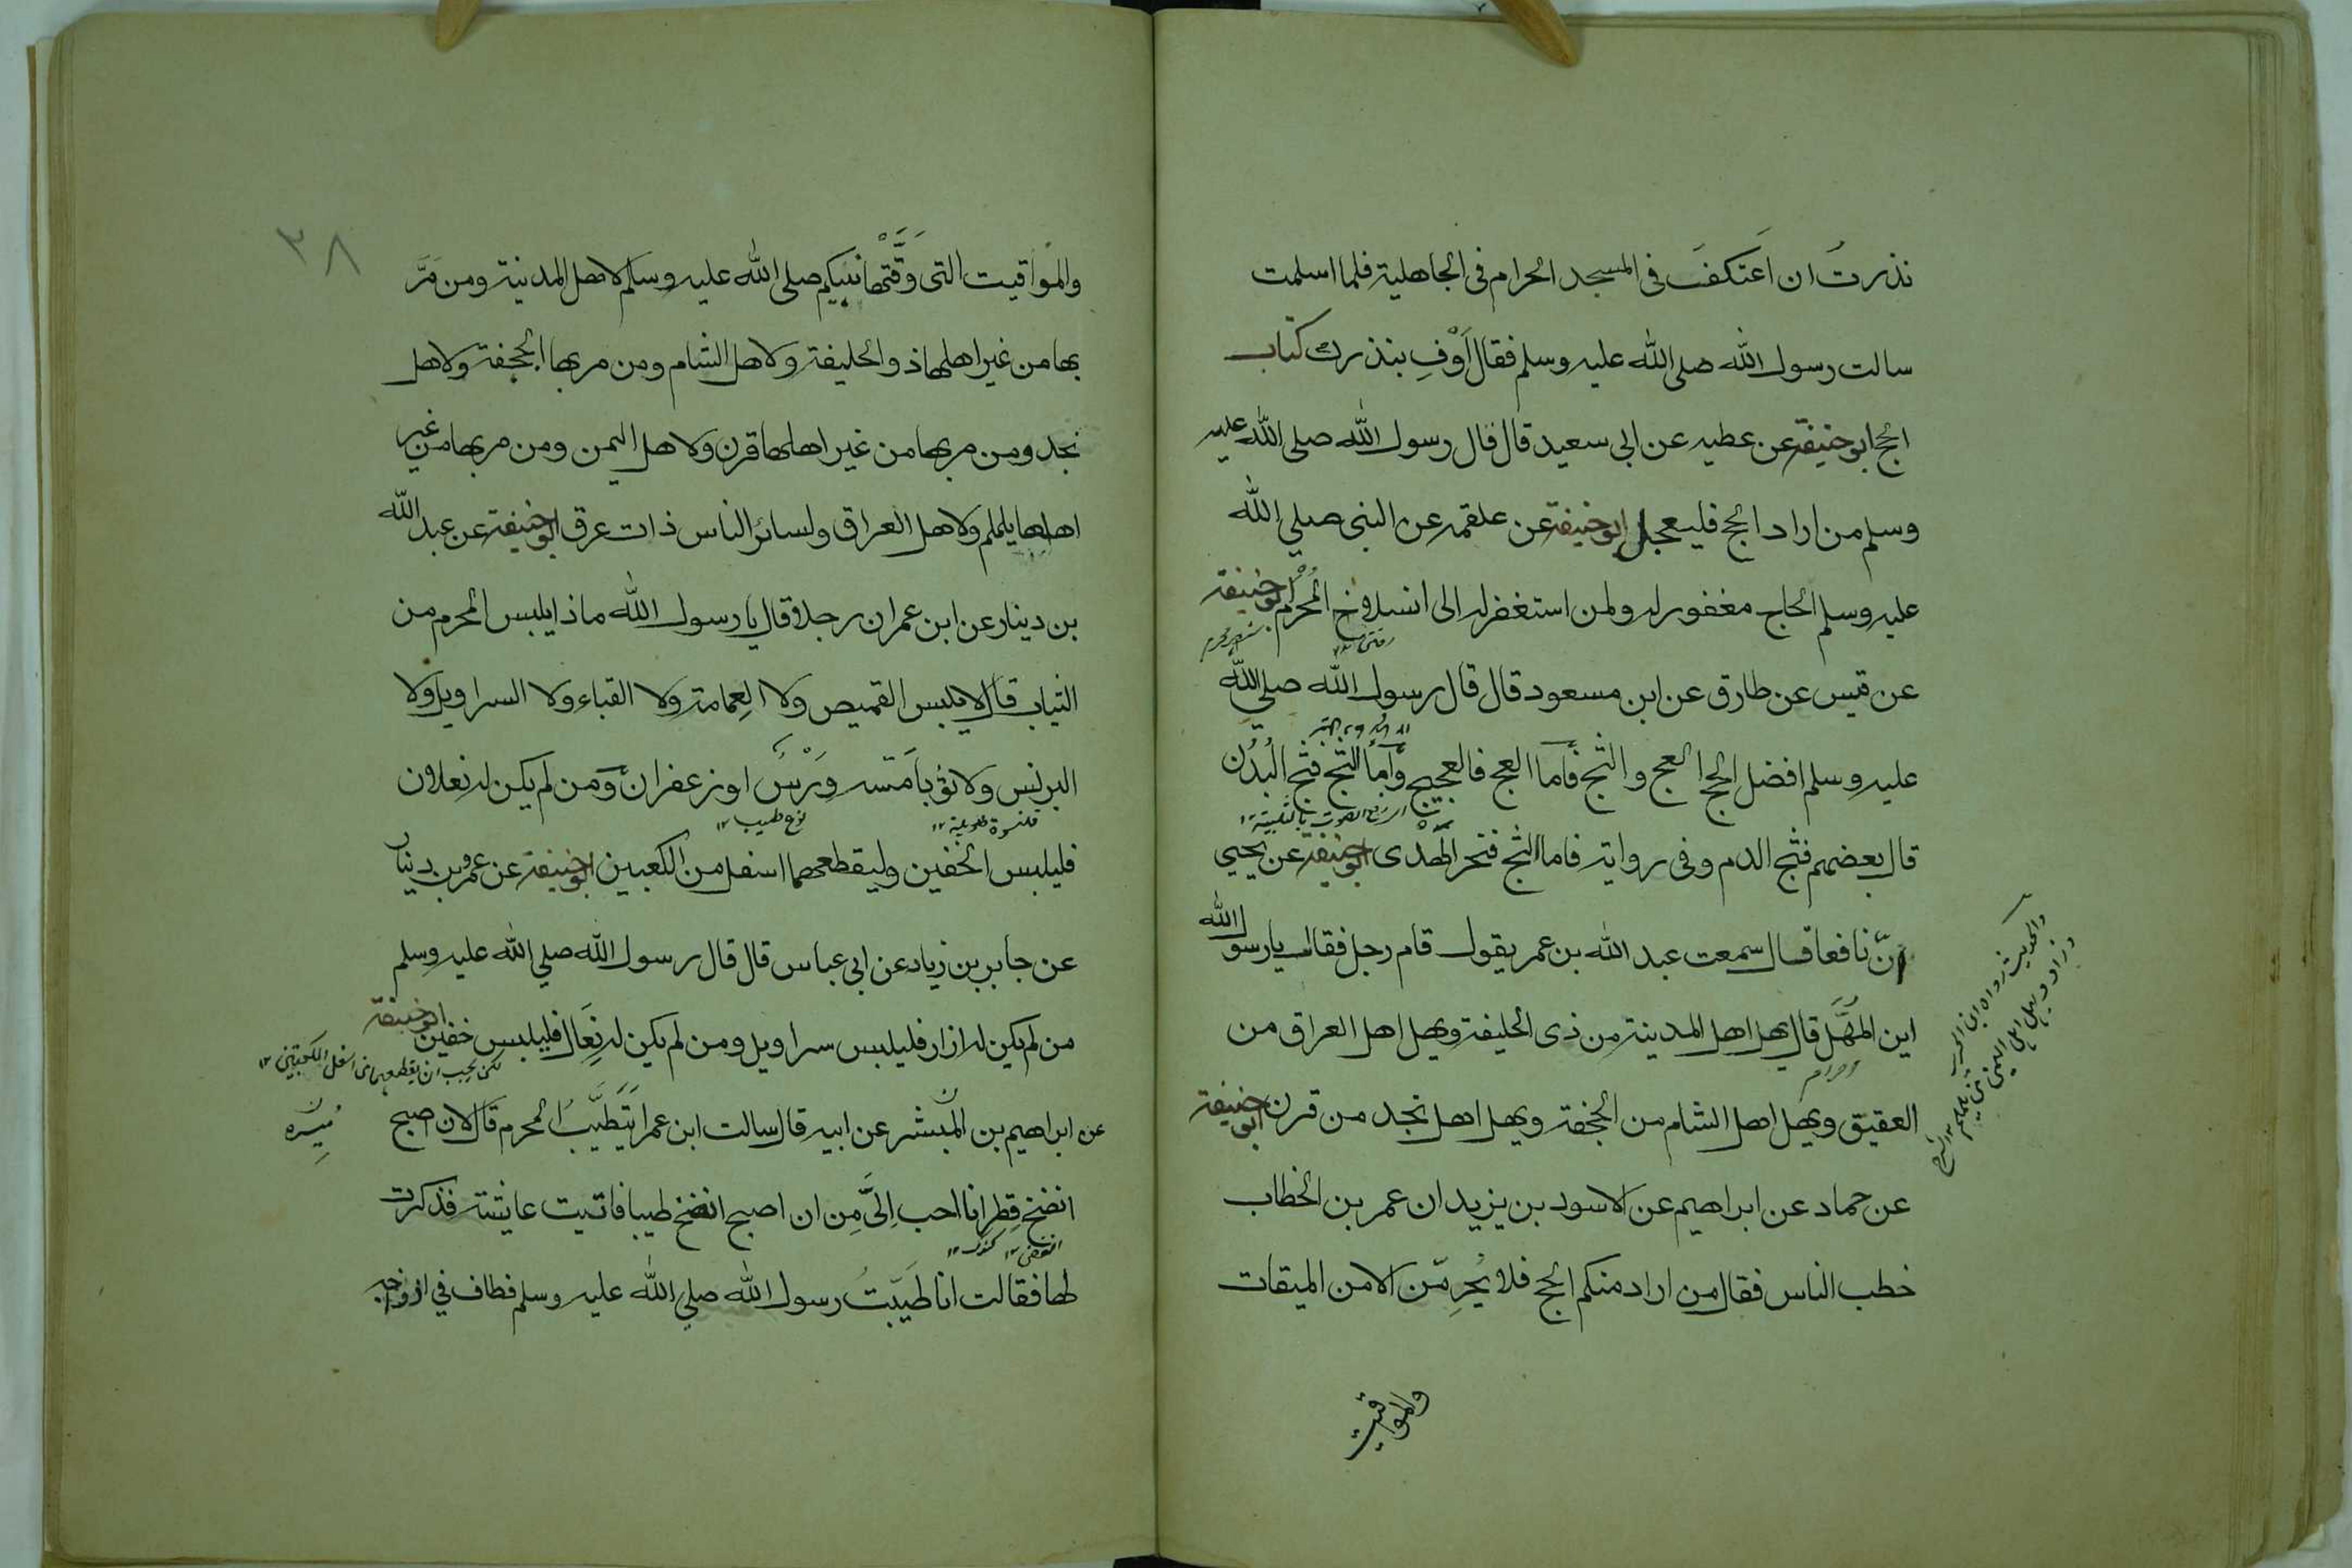 نذرت ان اعتكف فى المسجد الحرام فى الجاهلية فلما اسلمت
سالت رسول الله صلى الله عليه وسلم فقال اَوْفِ بنذرك كتاب
الحج ابو حنيفة عن عطيه عن ابى سعيد قال قال رسول الله صلى الله عليه
وسلم من اراد الحج فليعجل ابو حنيفة عن علقمه عن النبى صلي الله
عليه وسلم الحاج مغفور له ولمن استغفر له الى انسلاخ المُحرّم ابو حنيفة
عن قيس عن طارق عن ابن مسعود قال قال رسول الله صلي الله
عليه وسلم افضل الحج العج والثج فاما العج فالعجيج وامّا الثج فثج البُدُن
الرفع الصوت بالتلبية ١٢
قال بعضهم فثج الدم وفى رواية فاما الثج فنحر الهَدْى ابو حنيفة عن يحيي
انّ نافعا قال سمعت عبد الله بن عمر يقول قام رجل فقال يا رسول الله
اين المهَلّ قال يهل اهل المدينة من ذى الحليفة ويهل اهل العراق من
احرام
العقيق ويهل اهل الشام من الجحفة ويهل اهل نجد من قرن ابى حنيفة
عن حماد عن ابراهيم عن الاسود بن يزيد ان عمر بن الخطاب
خطب الناس فقال من اراد منكم الحج فلا يُحرِمّن الا من الميقات
والمواقيت
٣٨
والمواقيت التى وَقَّتْها نبيكم صلى الله عليه وسلم لاهل المدينة ومن مَرَّ
بها من غير اهلها ذو الحليفة ولاهل الشام ومن مر بها الجحفة ولاهل
نجد ومن مر بها من غير اهلها قرن ولاهل اليمن ومن مر بها من غير
اهلها يلملم ولاهل العراق ولسائر الناس ذات عرق ابو حنيفة عن عبد الله
بن دينار عن ابن عمر ان رجلا قال يا رسول الله ماذا يلبس المحرم من
الثياب قال لا يلبس القميص ولا العِمامة ولا القباء ولا السراويل ولا
البرنس ولا ثوبا مَسّه وَرْسٌ او زعفران ومن لم يكن له نعلان
قلنسوة طويلة ١٢ نوع طيب ١٢
فليلبس الخفين وليقطعهما اسفل من الكعبين ابو حنيفة عن عمرو بن دينار
عن جابر بن زياد عن ابى عباس قال قال رسول الله صلي الله عليه وسلم
من لم يكن له ازار فليلبس سراويل ومن لم يكن له نِعَال فليلبس خفين ابو حنيفة
لكن يجب ان يقطعهما من اسفل الكعبين ١٢
عن ابراهيم بن المنتشر عن ابيه قال سالت ابن عمر ايَتَطَيَّبُ المحرم قال لان اصبح
انضخ قِطرانا احب اِلَىَّ مِن ان اصبح انضخ طيبا فاتيت عايشة فذكرت
لها فقالت انا طَيّبتُ رسول الله صلي الله عليه وسلم فطاف في ازواجه